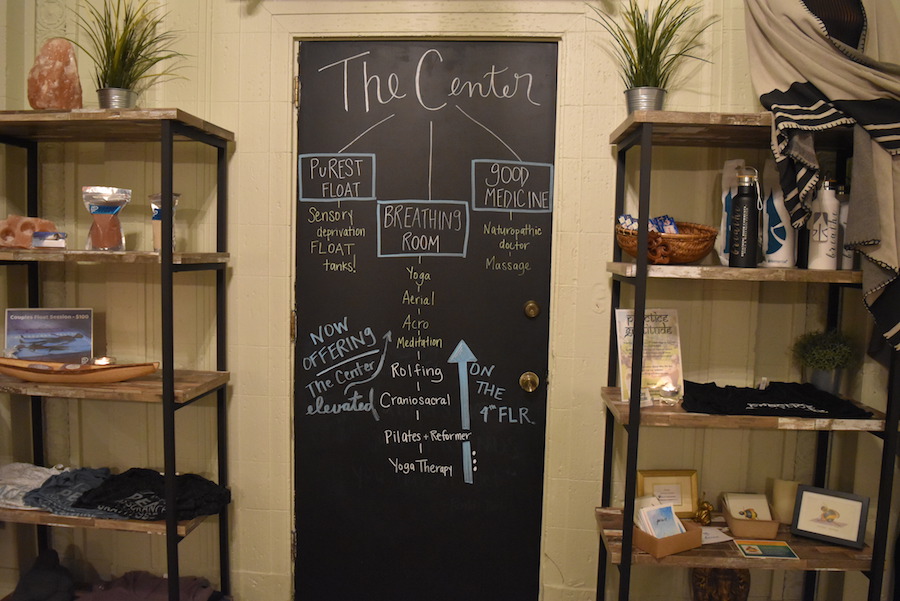 The Center
PUREST
FLOAT
Sensory
deprivation
FLOAT
tanks!
BREATHING
ROOM
Yoga
Aerial
Acro
Meditation
Rolfing
Craniosacral
Pilates + Reformer
Yoga Therapy
GOOD
MEDICINE
Naturopathic
doctor
Massage
NOW
OFFERING
The Center
elevated
ON
THE
4th FLR.
Couples Float Session - $100
practice
gratitude